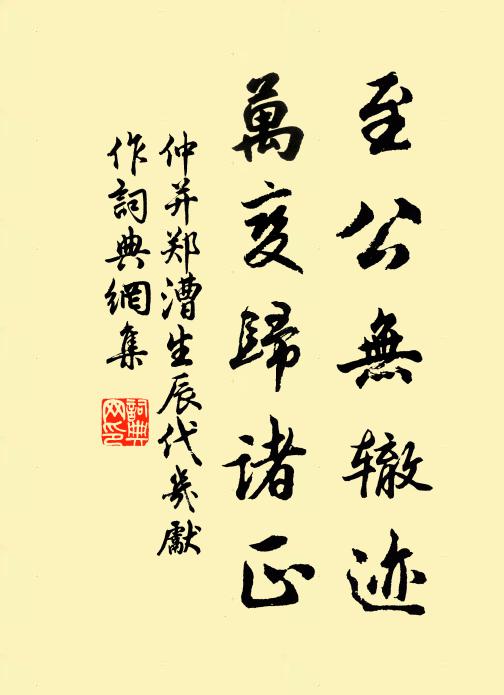 至公無辙迹
萬变歸诸正
仲并郑漕生辰代岁獻
作詞典網集
詞典网印